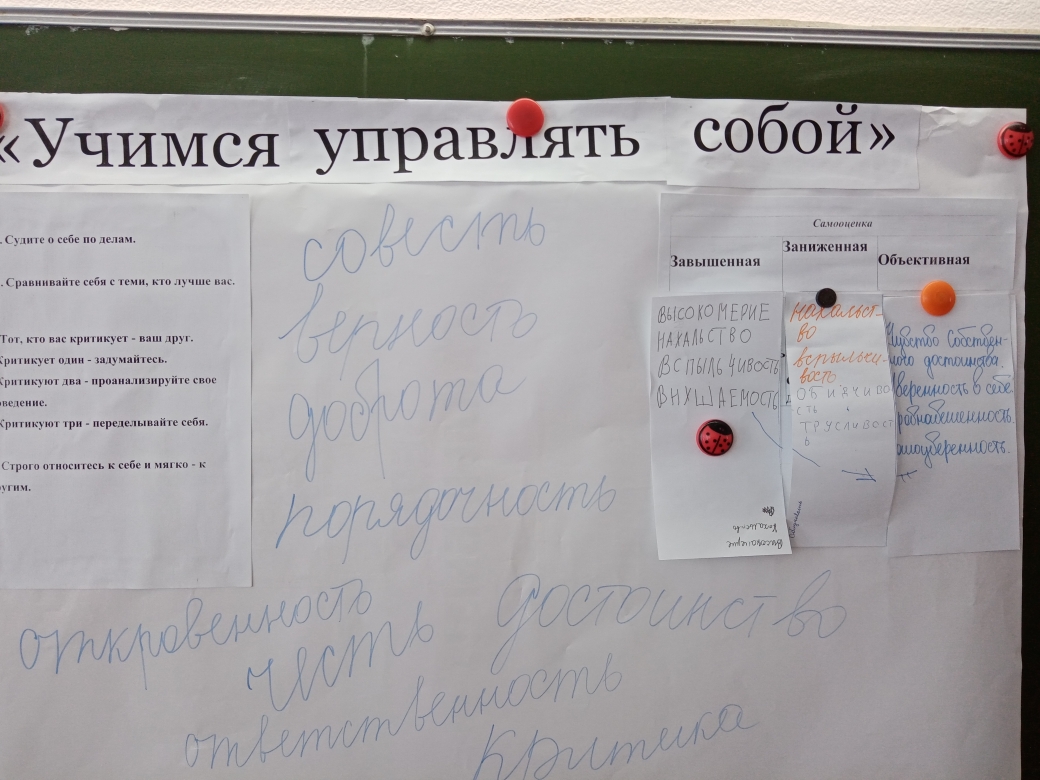 «Учимся управлять собой»
. Судите о себе по делам.
. Сравнивайте себя с теми, кто лучше вас.
Тот, кто вас критикует - ваш друг.
Критикует один - задумайтесь.
Критикуют два - проанализируйте свое
оведение.
Критикуют три - переделывайте себя.
Строго относитесь к себе и мягко - к
ругим.
совесть
верность
доброта
порядочность
откровенность
честь
достоинство
ответственность
критика
Самооценка
Завышенная
Заниженная
Объективная
ВЫСОКОМЕРИЕ
НАХАЛЬСТВО
ВСПЫЛЬЧИВОСТЬ
ВНУШАЕМОСТЬ
Нахальст-
во
вспыльчи-
вость
ОБИДЧИВО
СТЬ
ТРУСЛИВОСТ
Ь
Чувство Собствен-
ного достоинства.
веренность в себе.
равновешенность.
Высокомерие